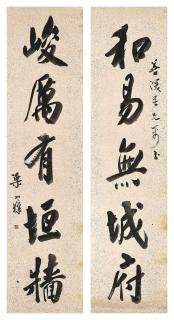 和易無城府
峻厲有垣牆